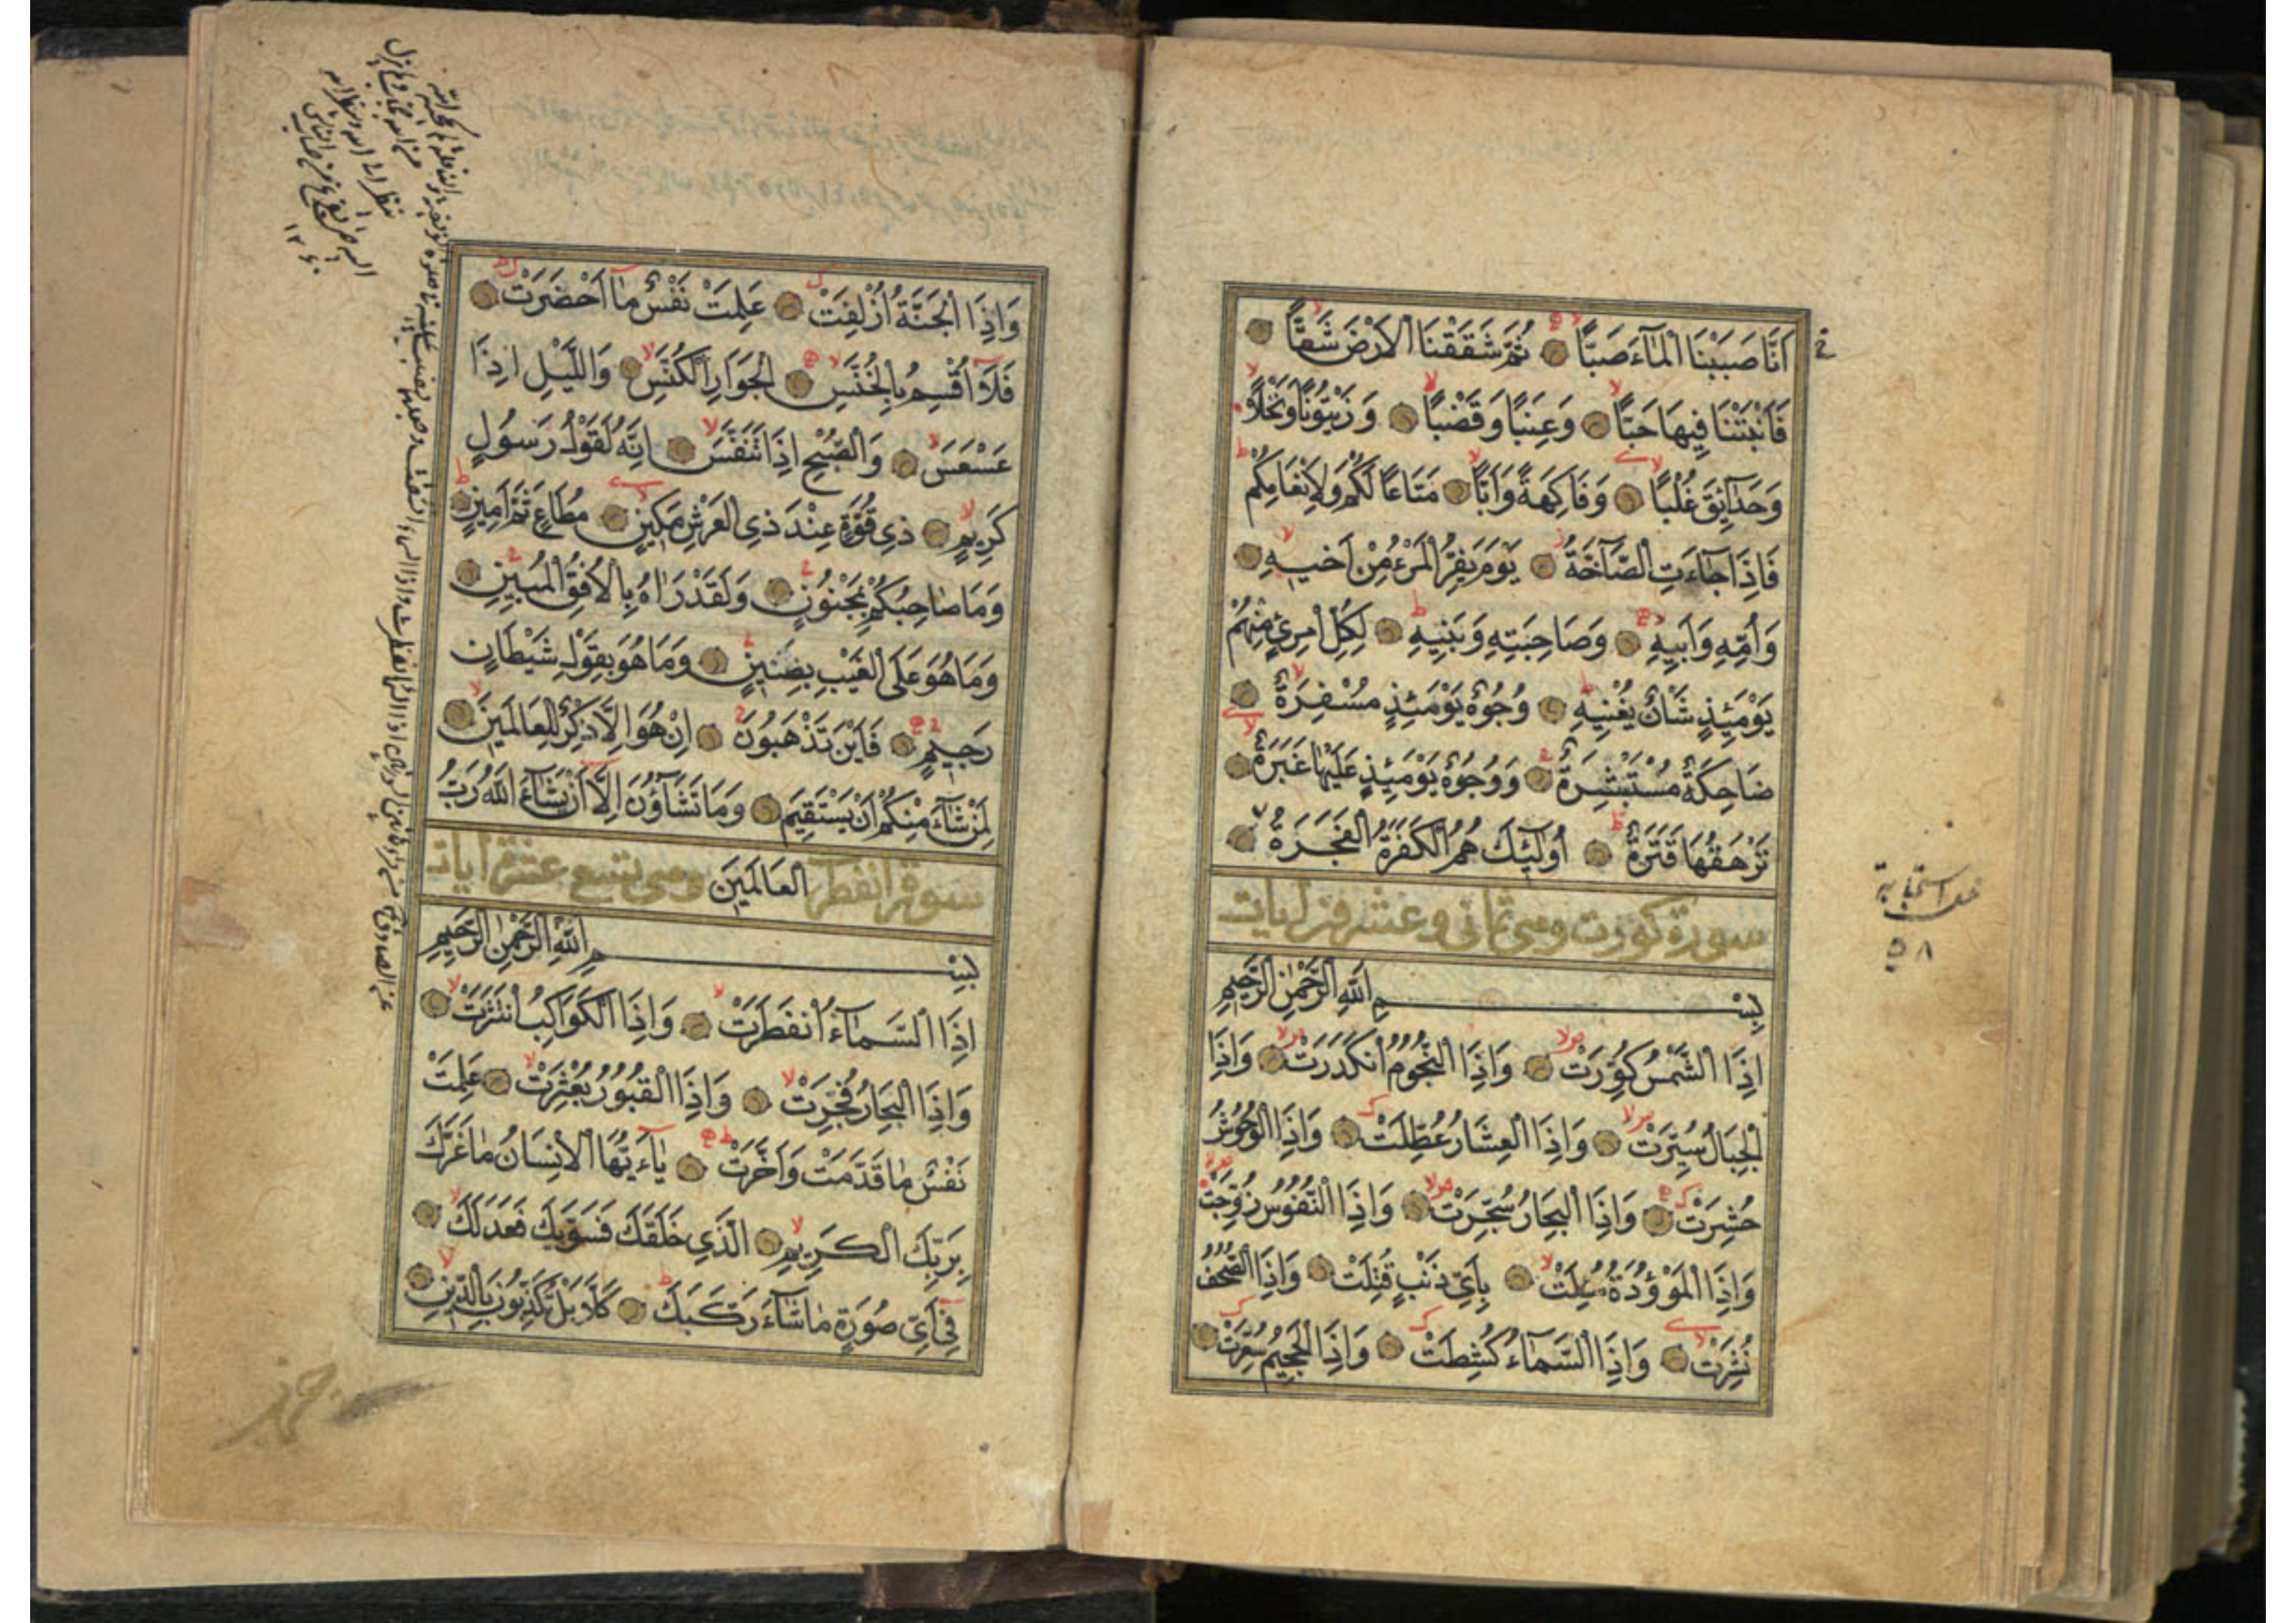 اَنَّا صَبَبْنَا الْمَآءَ صَبًّا ثُمَّ شَقَقْنَا الْاَرْضَ شَقًّا
فَاَنْبَتْنَا فِيهَا حَبًّا وَعِنَبًا وَقَضْبًا وَزَيْتُونًا وَنَخْلًا
وَحَدَآئِقَ غُلْبًا وَفَاكِهَةً وَاَبًّا مَتَاعًا لَكُمْ وَلِاَنْعَامِكُمْ
فَاِذَا جَآءَتِ الصَّآخَّةُ يَوْمَ يَفِرُّ الْمَرْءُ مِنْ اَخيهِ
وَاُمِّهِ وَاَبيهِ وَصَاحِبَتِهِ وَبَنيهِ لِكُلِّ امْرِئٍ مِنْهُمْ
يَوْمَئِذٍ شَأْنٌ يُغْنيهِ وُجُوهٌ يَوْمَئِذٍ مُسْفِرَةٌ
ضَاحِكَةٌ مُسْتَبْشِرَةٌ وَوُجُوهٌ يَوْمَئِذٍ عَلَيْهَا غَبَرَةٌ
تَرْهَقُهَا قَتَرَةٌ اُولٰٓئِكَ هُمُ الْكَفَرَةُ الْفَجَرَةُ
سورة كورت وهى ثمانى وعشرون ايات
بِسْمِ اللّٰهِ الرَّحْمٰنِ الرَّحيمِ
اِذَا الشَّمْسُ كُوِّرَتْ وَاِذَا النُّجُومُ انْكَدَرَتْ وَاِذَا
الْجِبَالُ سُيِّرَتْ وَاِذَا الْعِشَارُ عُطِّلَتْ وَاِذَا الْوُحُوشُ
حُشِرَتْ وَاِذَا الْبِحَارُ سُجِّرَتْ وَاِذَا النُّفُوسُ زُوِّجَتْ
وَاِذَا الْمَوْؤُدَةُ سُئِلَتْ بِاَيِّ ذَنْبٍ قُتِلَتْ وَاِذَا الصُّحُفُ
نُشِرَتْ وَاِذَا السَّمَآءُ كُشِطَتْ وَاِذَا الْجَحيمُ سُعِّرَتْ
٥٨
وَاِذَا الْجَنَّةُ اُزْلِفَتْ عَلِمَتْ نَفْسٌ مَآ اَحْضَرَتْ
فَلَآ اُقْسِمُ بِالْخُنَّسِ الْجَوَارِ الْكُنَّسِ وَاللَّيْلِ اِذَا
عَسْعَسَ وَالصُّبْحِ اِذَا تَنَفَّسَ اِنَّهُ لَقَوْلُ رَسُولٍ
كَريمٍ ذي قُوَّةٍ عِنْدَ ذِي الْعَرْشِ مَكينٍ مُطَاعٍ ثَمَّ اَمينٍ
وَمَا صَاحِبُكُمْ بِمَجْنُونٍ وَلَقَدْ رَاٰهُ بِالْاُفُقِ الْمُبينِ
وَمَا هُوَ عَلَى الْغَيْبِ بِضَنينٍ وَمَا هُوَ بِقَوْلِ شَيْطَانٍ
رَجيمٍ فَاَيْنَ تَذْهَبُونَ اِنْ هُوَ اِلَّا ذِكْرٌ لِلْعَالَمينَ
لِمَنْ شَآءَ مِنْكُمْ اَنْ يَسْتَقيمَ وَمَا تَشَآؤُنَ اِلَّآ اَنْ يَشَآءَ اللّٰهُ رَبُّ
الْعَالَمينَ
سورة انفطر وهى تسع عشر ايات
بِسْمِ اللّٰهِ الرَّحْمٰنِ الرَّحيمِ
اِذَا السَّمَآءُ انْفَطَرَتْ وَاِذَا الْكَوَاكِبُ انْتَثَرَتْ
وَاِذَا الْبِحَارُ فُجِّرَتْ وَاِذَا الْقُبُورُ بُعْثِرَتْ عَلِمَتْ
نَفْسٌ مَا قَدَّمَتْ وَاَخَّرَتْ يَآءَيُّهَا الْاِنْسَانُ مَا غَرَّكَ
بِرَبِّكَ الْكَريمِ الَّذي خَلَقَكَ فَسَوّٰيكَ فَعَدَلَكَ
في اَيِّ صُورَةٍ مَا شَآءَ رَكَّبَكَ كَلَّا بَلْ تُكَذِّبُونَ بِالدّينِ